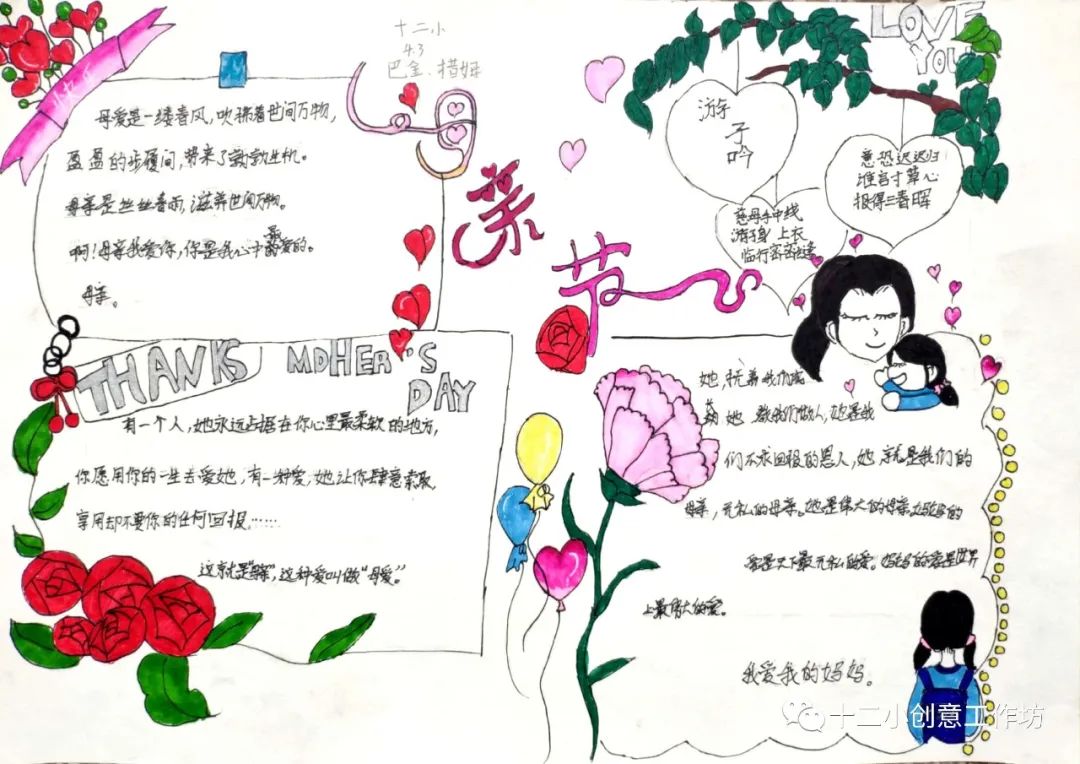 十二小
4.3
巴金.措姆
母亲节
LOVE
YOU
母爱是一缕春风,吹拂着世间万物,
盈盈的步履间,带来了款款生机。
母亲是丝丝春雨,滋养世间万物。
啊!母亲我爱你,你是我心中最爱的。
母亲。
THANKS MOHER'S
DAY
有一个人,她永远占据在你心里最柔软的地方,
你愿用你的一生去爱她,有一种爱,她让你肆意索取,
享用却不要你的任何回报……
这就是"母亲",这种爱叫做"母爱"。
游子吟
慈母手中线
游子身上衣
临行密密缝
意恐迟迟归
谁言寸草心
报得三春晖
她,
她 教我们做人,她是我
们不求回报的恩人,她 就是我们的
母亲,无私的母亲。她是伟大的母亲
爱是天下最无私的爱。妈妈的爱是世界
上最伟大的爱。
我爱我的妈妈。
十二小创意工作坊